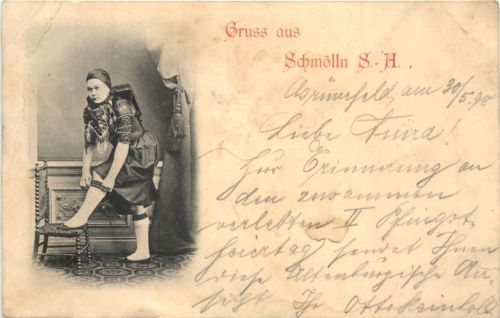 Gruss aus
Schmölln S.-A.
am 30/5.98
Liebe
Zur Erinnerung an
den zusammen
verlebten II Pfingst-
feiertag sendet Ihnen
diese Altenburgische An-
sicht Ihr Otto Reinhold